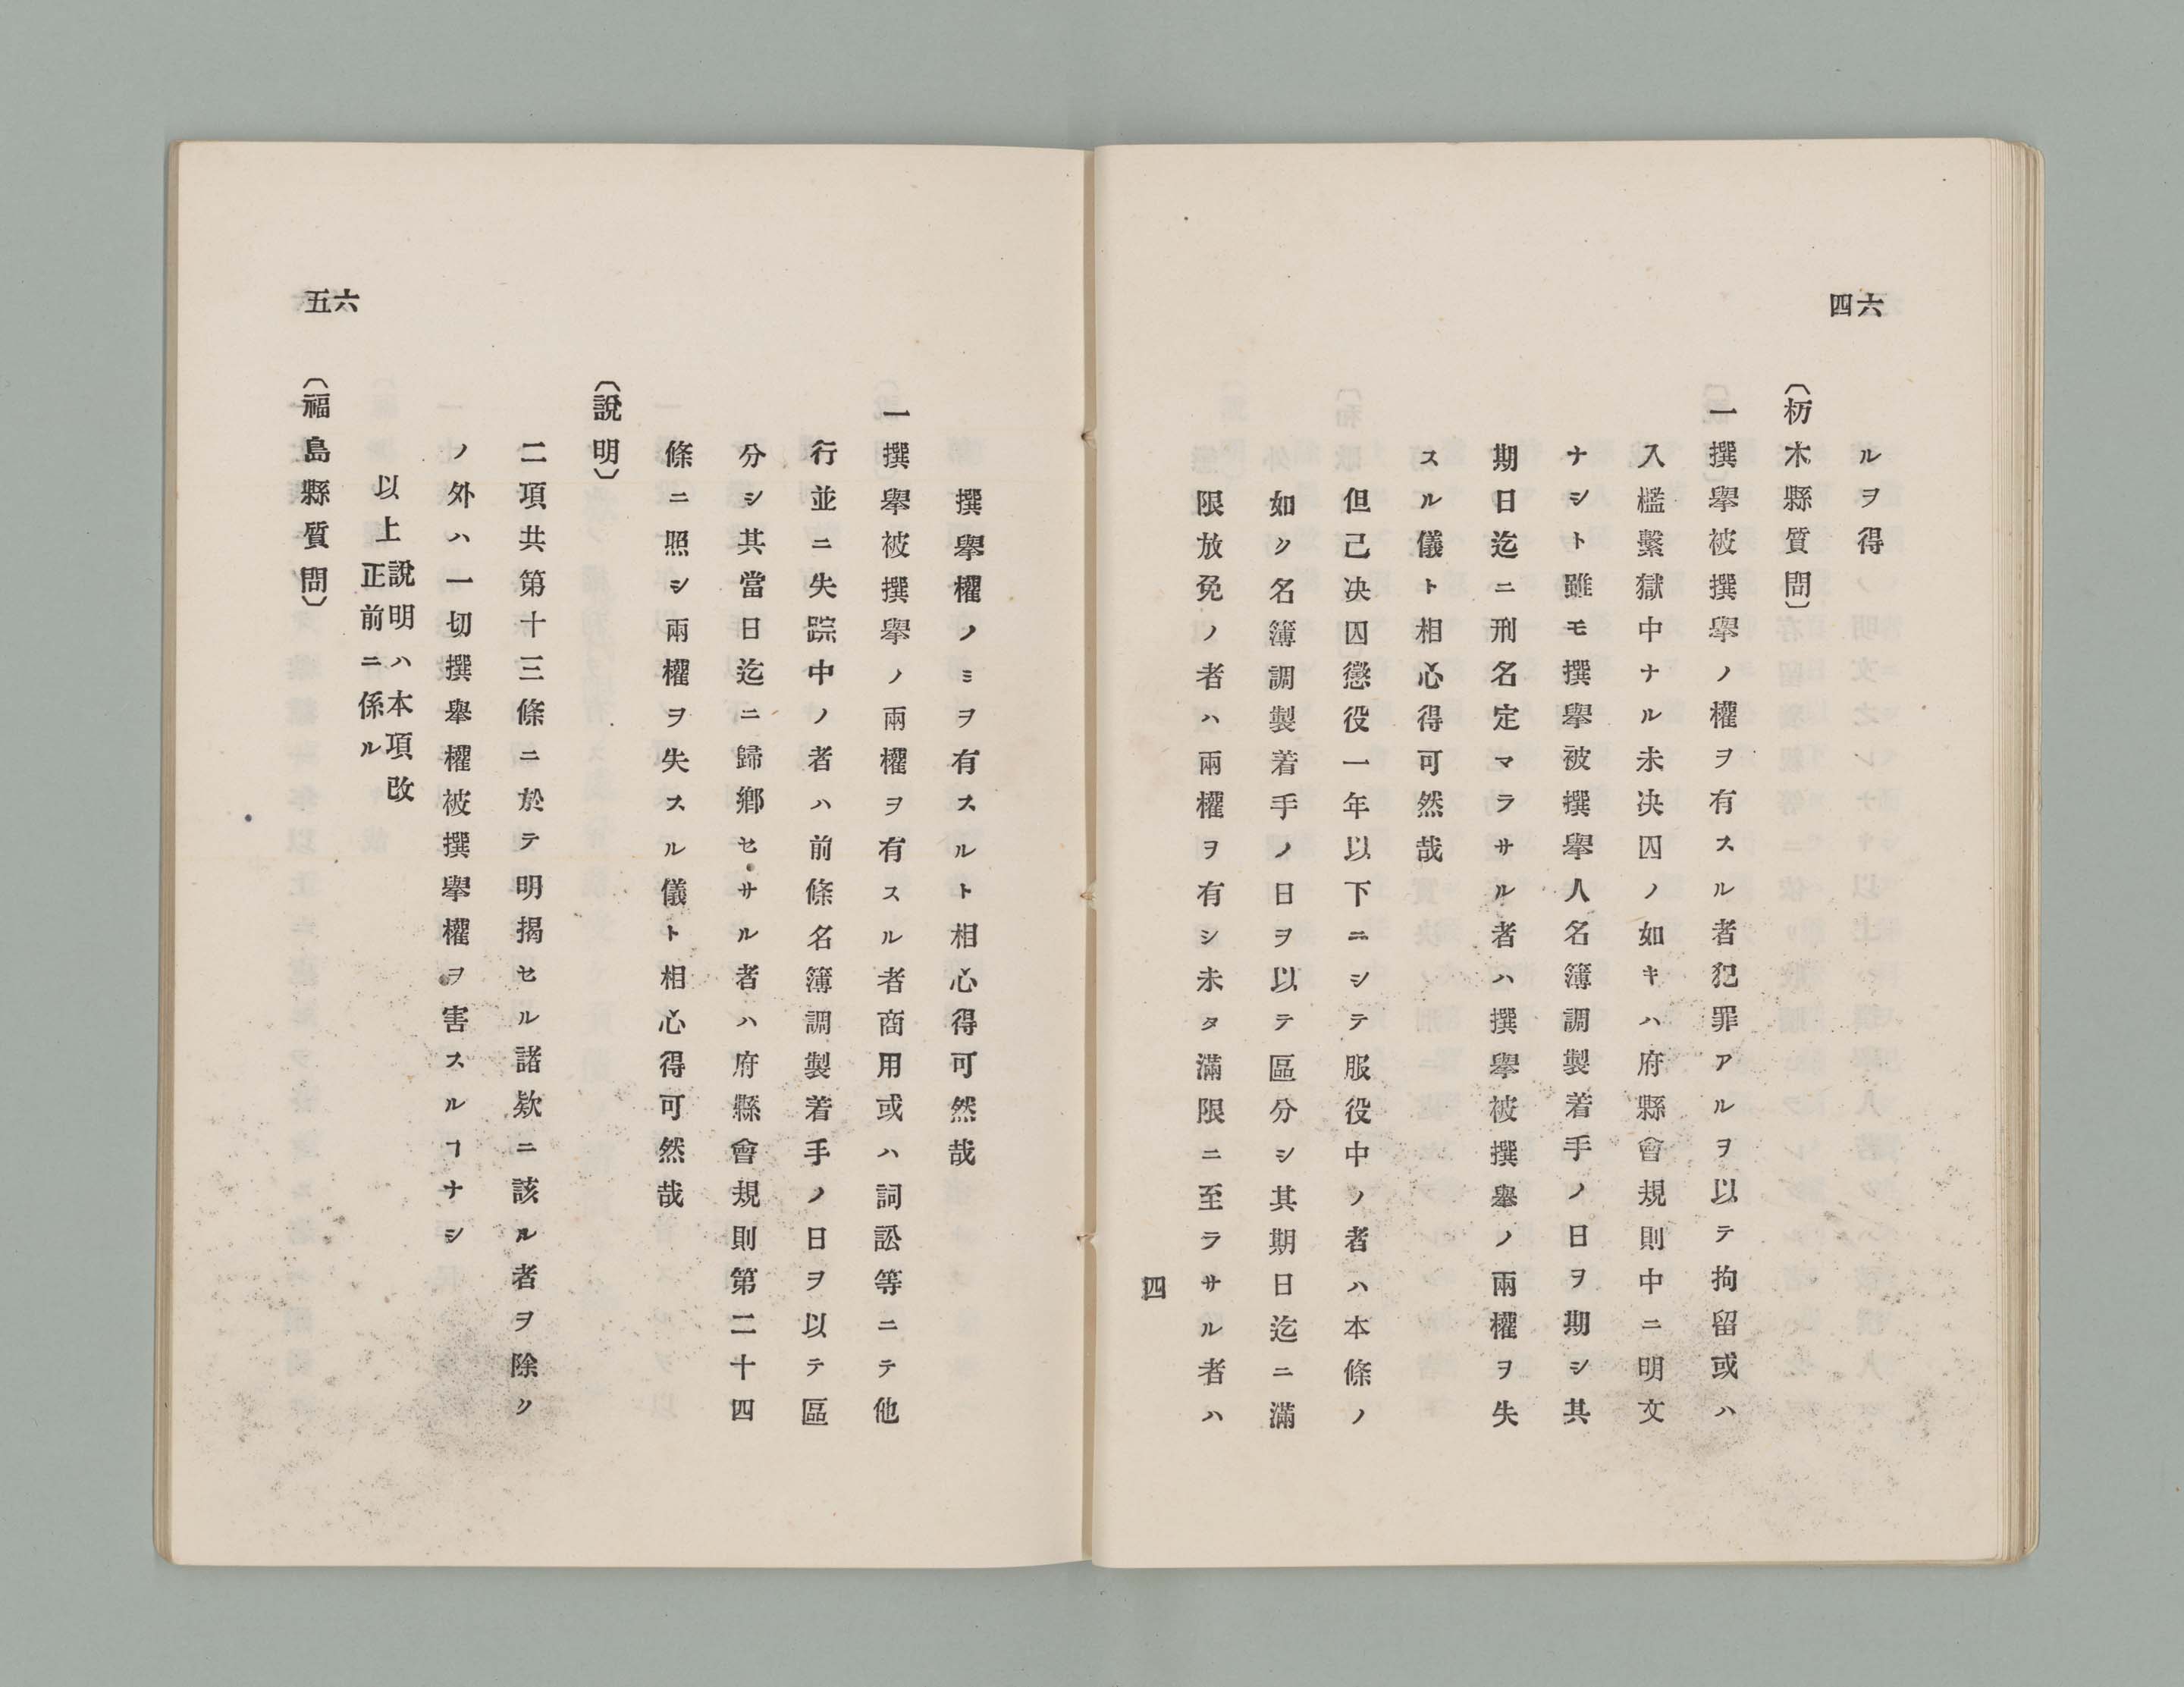 六四
ルヲ得
〔栃木縣質問〕
一撰擧被撰擧ノ權ヲ有スル者犯罪アルヲ以テ拘留或ハ
入檻繫獄中ナル未决囚ノ如キハ府縣會規則中ニ明文
ナシト雖モ撰擧被撰擧人名簿調製着手ノ日ヲ期シ其
期日迄ニ刑名定マラサル者ハ撰擧被撰擧ノ兩權ヲ失
スル儀ト相心得可然哉
但己决囚懲役一年以下ニシテ服役中ノ者ハ本條ノ
如ク名簿調製着手ノ日ヲ以テ區分シ其期日迄ニ滿
限放免ノ者ハ兩權ヲ有シ未タ滿限ニ至ラサル者ハ
四
撰擧權ノミヲ有スルト相心得可然哉
一撰擧被撰擧ノ兩權ヲ有スル者商用或ハ詞訟等ニテ他
行並ニ失踪中ノ者ハ前條名簿調製着手ノ日ヲ以テ區
分シ其當日迄ニ歸鄕セサル者ハ府縣會規則第二十四
條ニ照シ兩權ヲ失スル儀ト相心得可然哉
〔說明〕
二項共第十三條ニ於テ明揭セル諸欵ニ該ル者ヲ除ク
ノ外ハ一切撰擧權被撰擧權ヲ害スルヿナシ
以上說明ハ本項改
正前ニ係ル
六五
〔福島縣質問〕